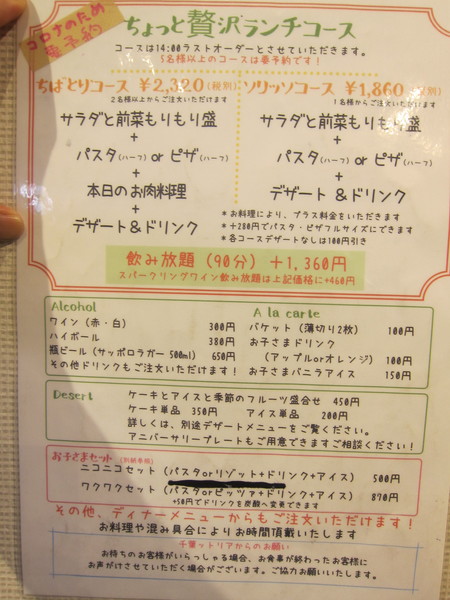 コロナのため
要予約
ちょっと贅沢ランチコース
コースは14:00ラストオーダーとさせていただきます。
5名様以上のコースは要予約です!
ちばとりコース ¥2,320(税別)
2名様以上からご注文いただけます
サラダと前菜もりもり盛
+
パスタ(ハーフ) or ピザ(ハーフ)
+
本日のお肉料理
+
デザート&ドリンク
ソリッソコース ¥1,860(税別)
1名様からご注文いただけます
サラダと前菜もりもり盛
+
パスタ(ハーフ) or ピザ(ハーフ)
+
デザート&ドリンク
*お料理により、プラス料金をいただきます
*+280円でパスタ・ピザフルサイズにできます
*各コースデザートなしは100円引き
飲み放題(90分)+1,360円
スパークリングワイン飲み放題は上記価格に+460円
Alcohol
ワイン(赤・白) 300円
ハイボール 380円
瓶ビール(サッポロラガー 500ml) 650円
その他ドリンクもご注文いただけます!
A la carte
バケット(薄切り2枚) 100円
お子さまドリンク
(アップルorオレンジ) 100円
お子さまバニラアイス 150円
Desert
ケーキとアイスと季節のフルーツ盛合せ 450円
ケーキ単品 350円 アイス単品 200円
詳しくは、別途デザートメニューをご覧ください。
アニバーサリープレートもご用意できますご相談ください!
お子さまセット
ニコニコセット (パスタorリゾット+ドリンク+アイス) 500円
ワクワクセット (パスタorピッツァ+ドリンク+アイス) 870円
+50円でドリンクを炭酸へ変更できます
その他、ディナーメニューからもご注文いただけます!
お料理や混み具合によりお時間頂戴いたします
千葉ットリアからのお願い
お待ちのお客様がいらっしゃる場合、お食事が終わったお客様に
お声がけさせていただく場合がございます。ご協力お願いいたします。